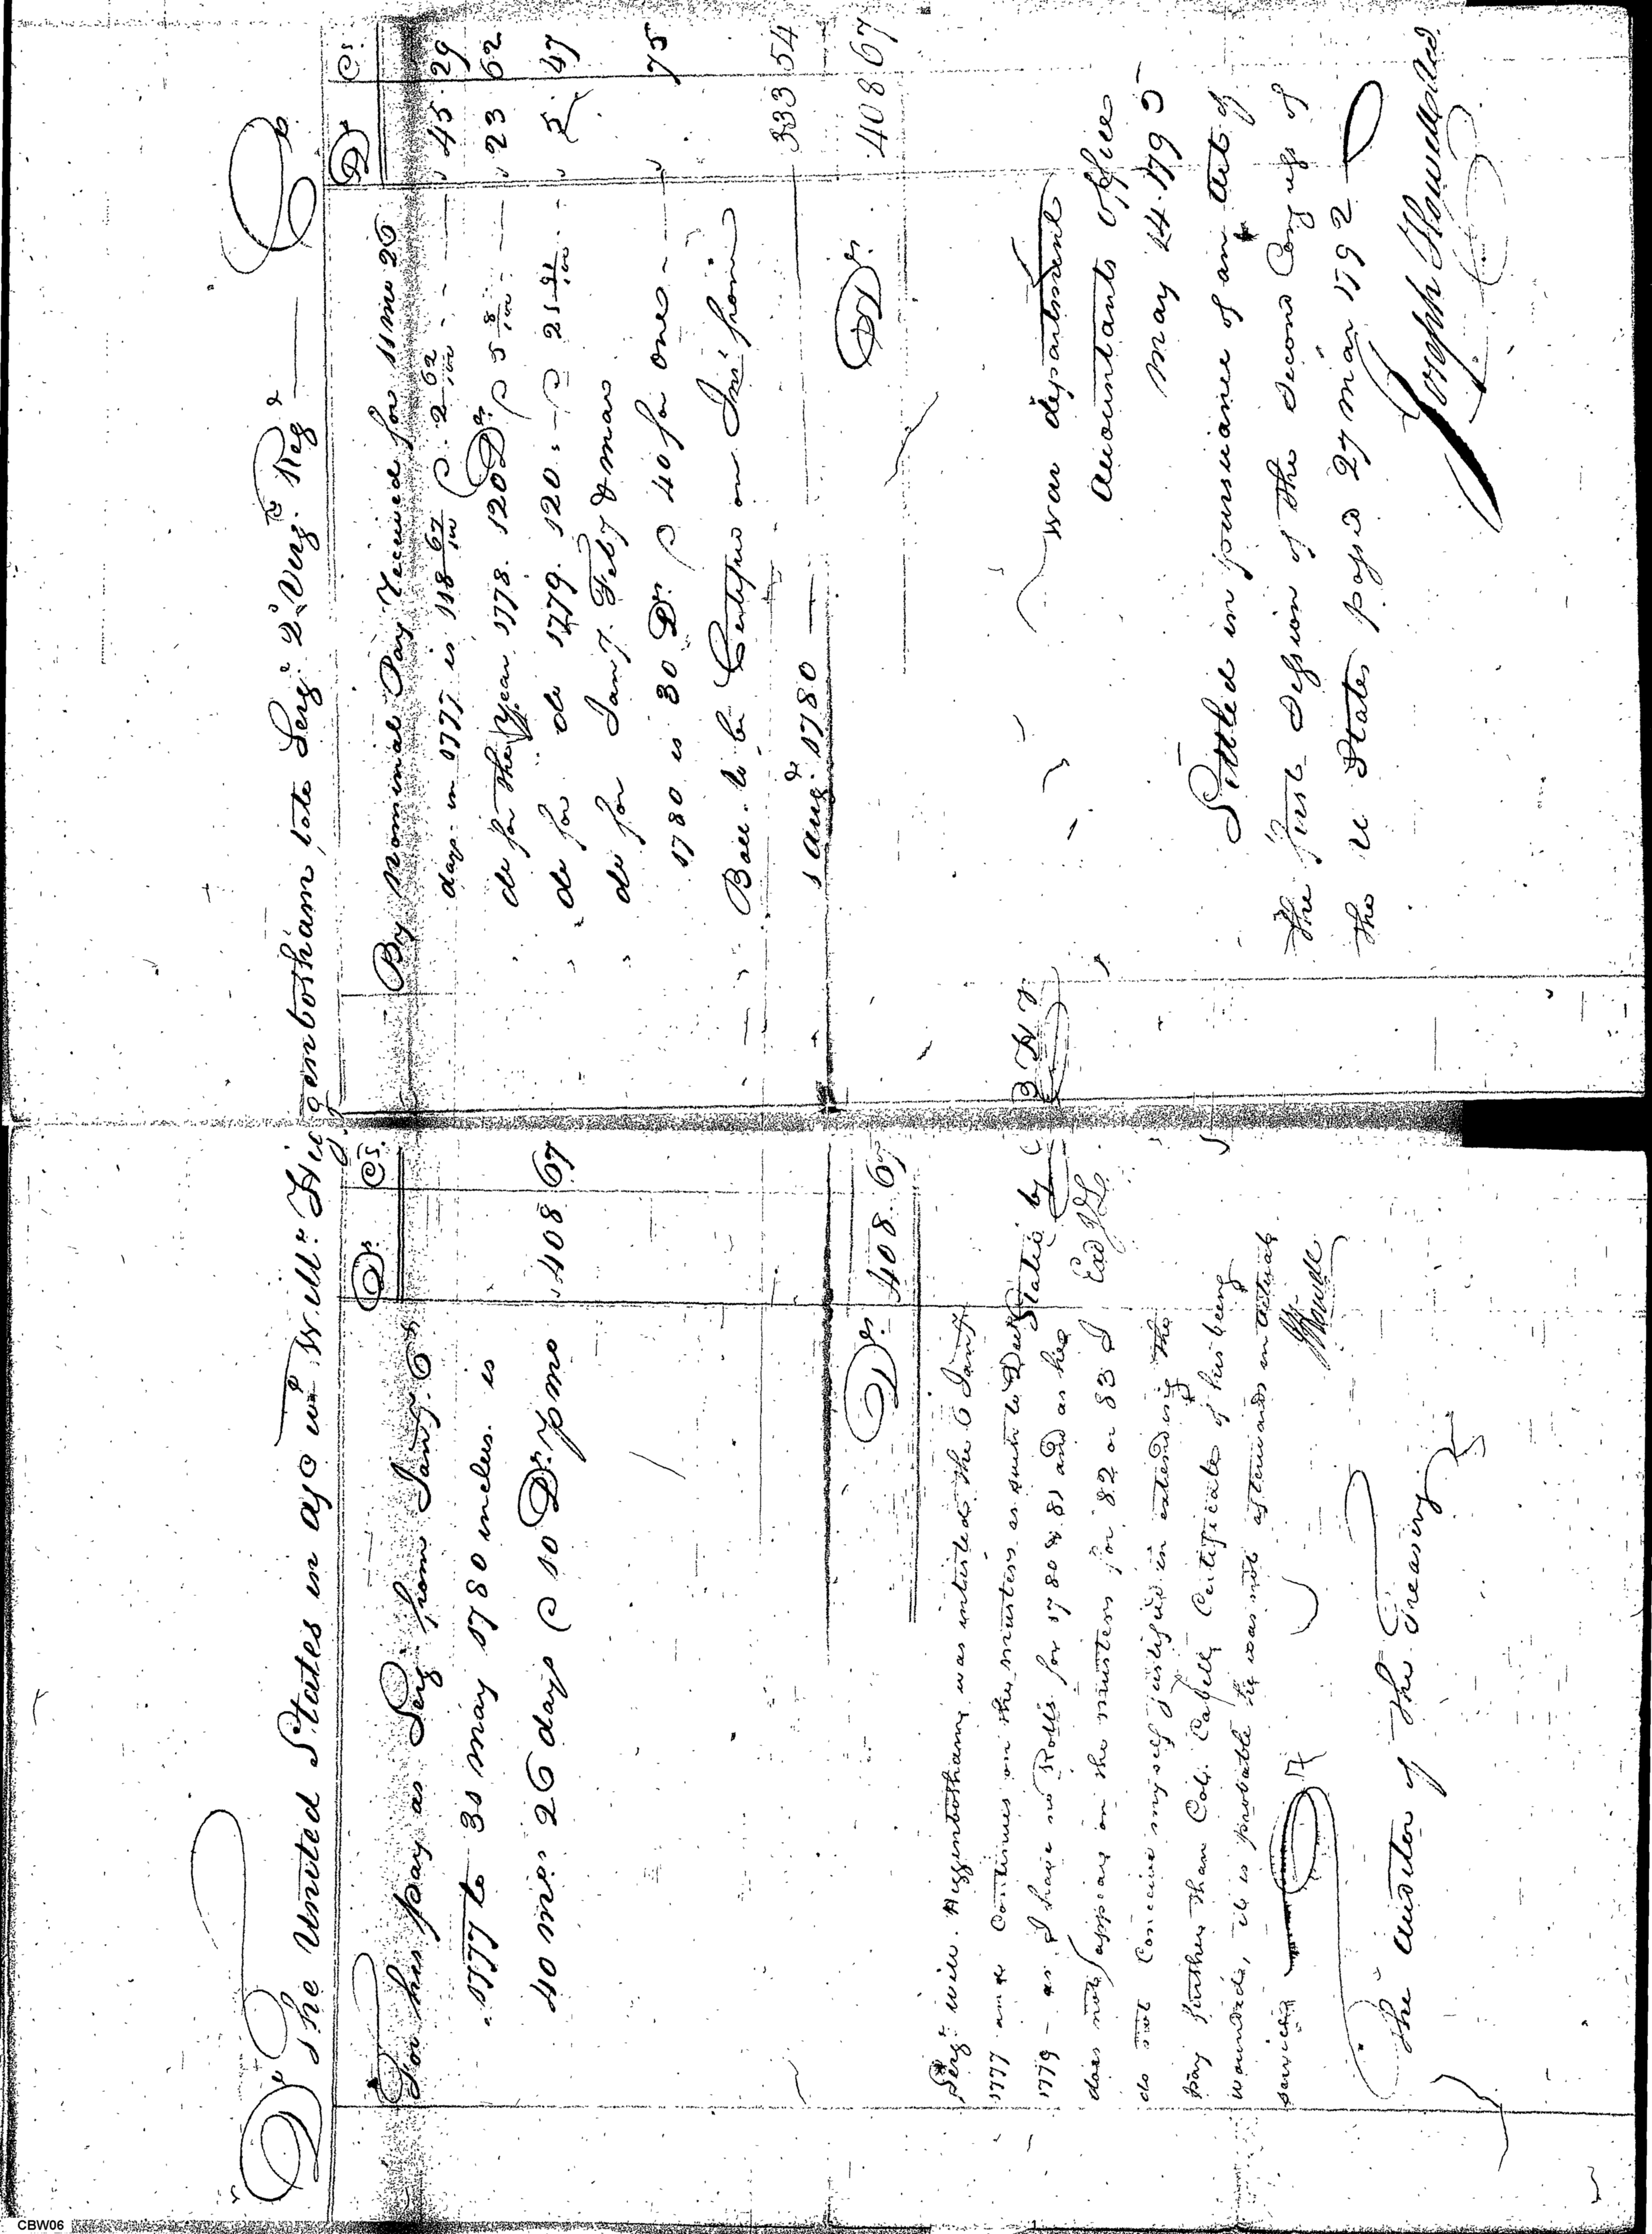 Dr The United States in a/c wth Willm Higgenbotham, late Sergt 2d Virga Regt Cr
Ds Cs
For his pay as Sergt from Jany 6th
1777 to 31 May 1780 inclus. is
40 mos 26 days @ 10 Drs. p mo 408 67
Drs. 408. 67
Sergt Will. Higgenbotham was intitled the 6 Jany
1777 and Continues on the musters as such to Decr
1779 - as I have no Rolls for 1780 & 81 and as he
does not appear on the musters for 82 or 83 I
do not Conceive myself justified in extending the
pay further than Col. Cabell's Certificate of his being
wounded, it is probable he was not afterwards in actual
service
JHowell
The Auditor of the Treasury
Stated by
Exd
Ds Cs
By Nominal Pay received for 11 mo 26
days in 1777 is 118 67/100 @ 2 62/100 45. 29
do for the year 1778. 120 Drs @ 5 8/100 23 62
do for do 1779. 120 @ 21 91/100 5. 47
do for Jany. Feby & mar
1780 is 30 Drs. @ 40 for one 75
Bal. to be Certified on Int. from
1 Augt 1780 333 54
Drs. 408 67
War department
Accountants Office
May 14. 1793
Settled in pursuance of an Act of
the first Session of the second Congress of
the U States passed 27 Mar 1792
Joseph Howell Acct
CBW06